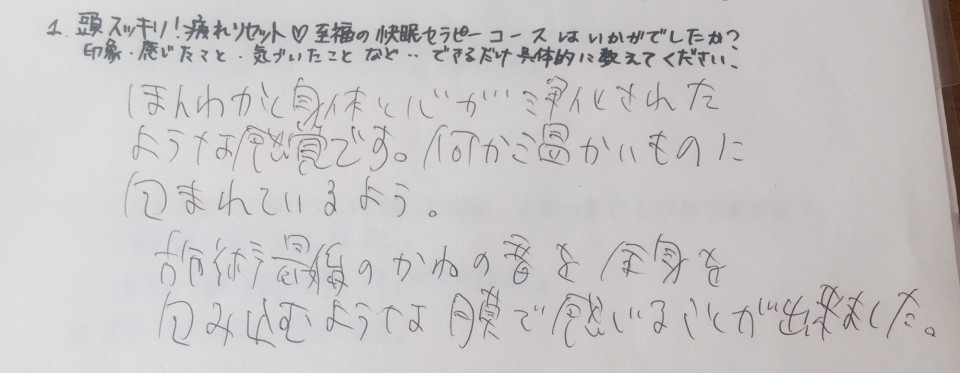 1. 頭スッキリ!疲れリセット♡至福の快眠セラピーコースはいかがでしたか?
印象・感じたこと・気づいたことなど…できるだけ具体的に教えてください。
ほんわかと身体と心が浄化された
ような感覚です。何か温かいものに
包まれているよう。
施術最後のかねの音を全身を
包み込むような膜で感じることが出来ました。